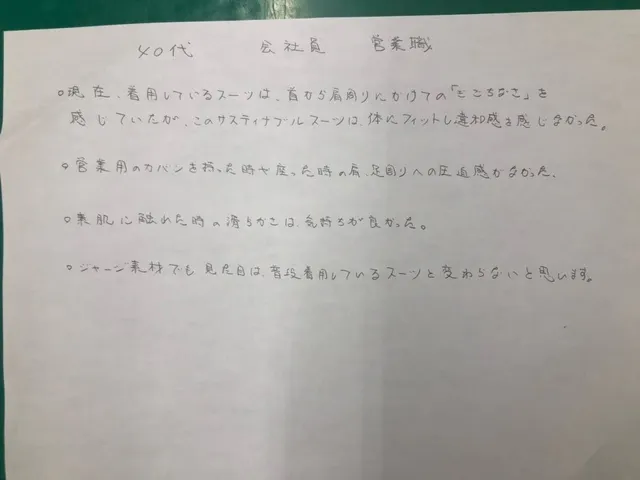 40代 会社員 営業職
○現在、着用しているスーツは、首から肩周りにかけての「ぎこちなさ」を
感じていたが、このサスティナブルスーツは、体にフィットし違和感を感じなかった。
○営業用のカバンを持った時や座った時の肩、足周りへの圧迫感がなかった。
○素肌に触れた時の滑らかさは、気持ちが良かった。
○ジャージ素材でも見た目は、普段着用しているスーツと変わらないと思います。